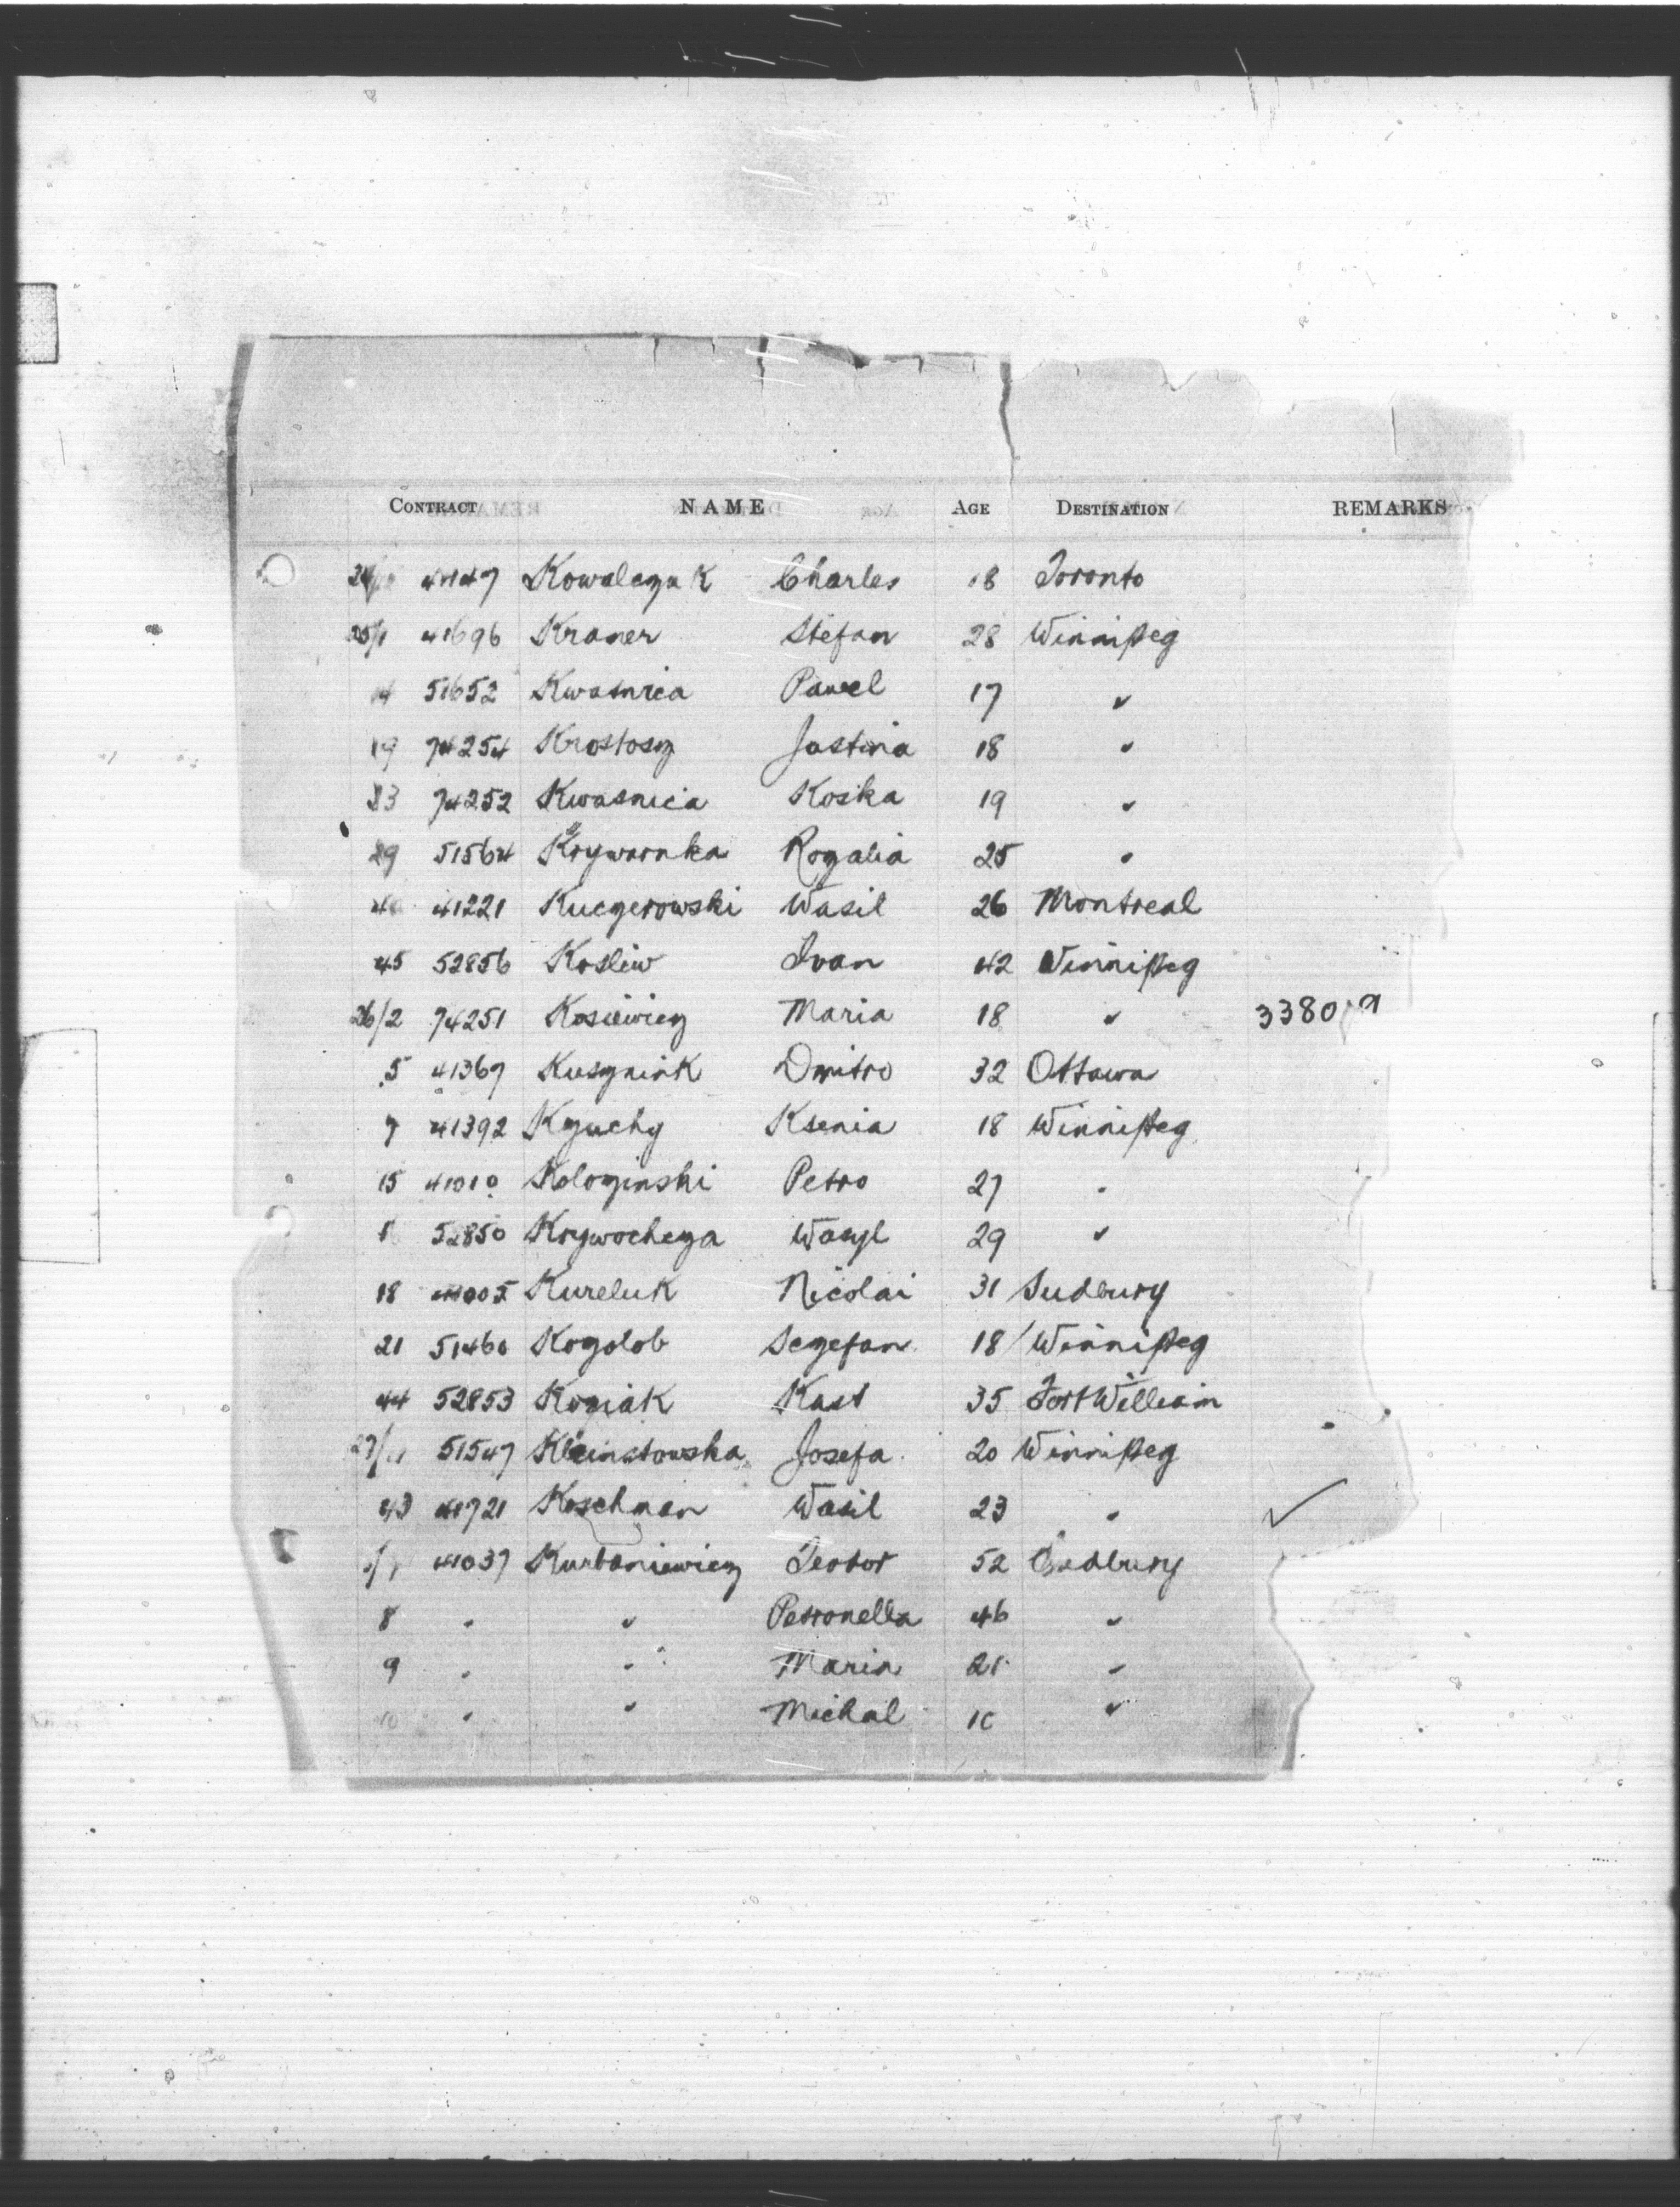 CONTRACT NAME AGE DESTINATION REMARKS
Kowalczuk Charles 18 Toronto
41696 Kraner Stefan 28 Winnipeg
51652 Kwasnica Pawel 17 "
19 74254 Krostosz Justina 18 "
33 74252 Kwasnica Koska 19 "
29 51564 Krywornka Rozalia 25 "
41221 Kuczerowski Wasil 26 Montreal
45 52856 Kosliw Ivan 42 Winnipeg
26/2 74251 Kosiewicz Maria 18 "
5 41367 Kuszniak Dmitro 32 Ottawa
7 41392 Kzuchy Ksenia 18 Winnipeg
15 41010 Kolozinski Petro 27 "
52850 Krywocheza Wasyl 29 "
18 Kureluk Nicolai 31 Sudbury
21 51460 Kozolob Szczefan 18 Winnipeg
44 52853 Koziak Kast 35 Fort William
51547 Kleinstowska Josefa 20 Winnipeg
43 41721 Koschman Wasil 23 "
41037 Kurbaniewicz Teodor 52 Sudbury
8 " " Petronella 46 "
9 " " Maria 21 "
10 " " Michal "